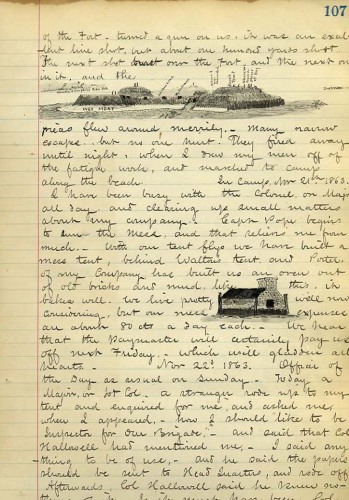 107
of the Fort - turned a gun on us, it was an excel-
lent line shot, but about one hundred yards short
The next shot burst over the Fort, and the next one
in it, and the
WET MOAT
pieces flew around, merrily - Many narrow
escapes - but no one hurt. They fired away
until night, when I drew my men off of
the fatigue work, and marched to camp
along the beach In Camp, Nov 21st 1863.
I have been busy with the Colonel, on Major
all day and clearing up small matters
about my company. Capt Pope begins
to run the Mess, and that relieves me from
much. - With our tent flys we have built a
mess tent, behind Walton's tent, and Porter
of my Company has built us an oven out
of old bricks and mud, like this. it
bakes well. We live pretty well now
considering, but our mess expenses
are about 80 cts a day each. - We hear
that the Paymaster will certainly pay us
off next Friday, - which will gladden all
hearts. - Nov 22d 1863. Officer of
the Day as usual on Sunday - Today a
Major, or Lt Col - a stranger rode up to my
tent and enquired for me, and asked me
when I appeared, - how I should like to be
Inspector for Our Brigade, - and said that Col
Hallowell had mentioned me - I said any-
thing to be of use, - and he said the papers
should be sent to Head Quarters, and rode off
Afterwards, Col Hallowell said he knew